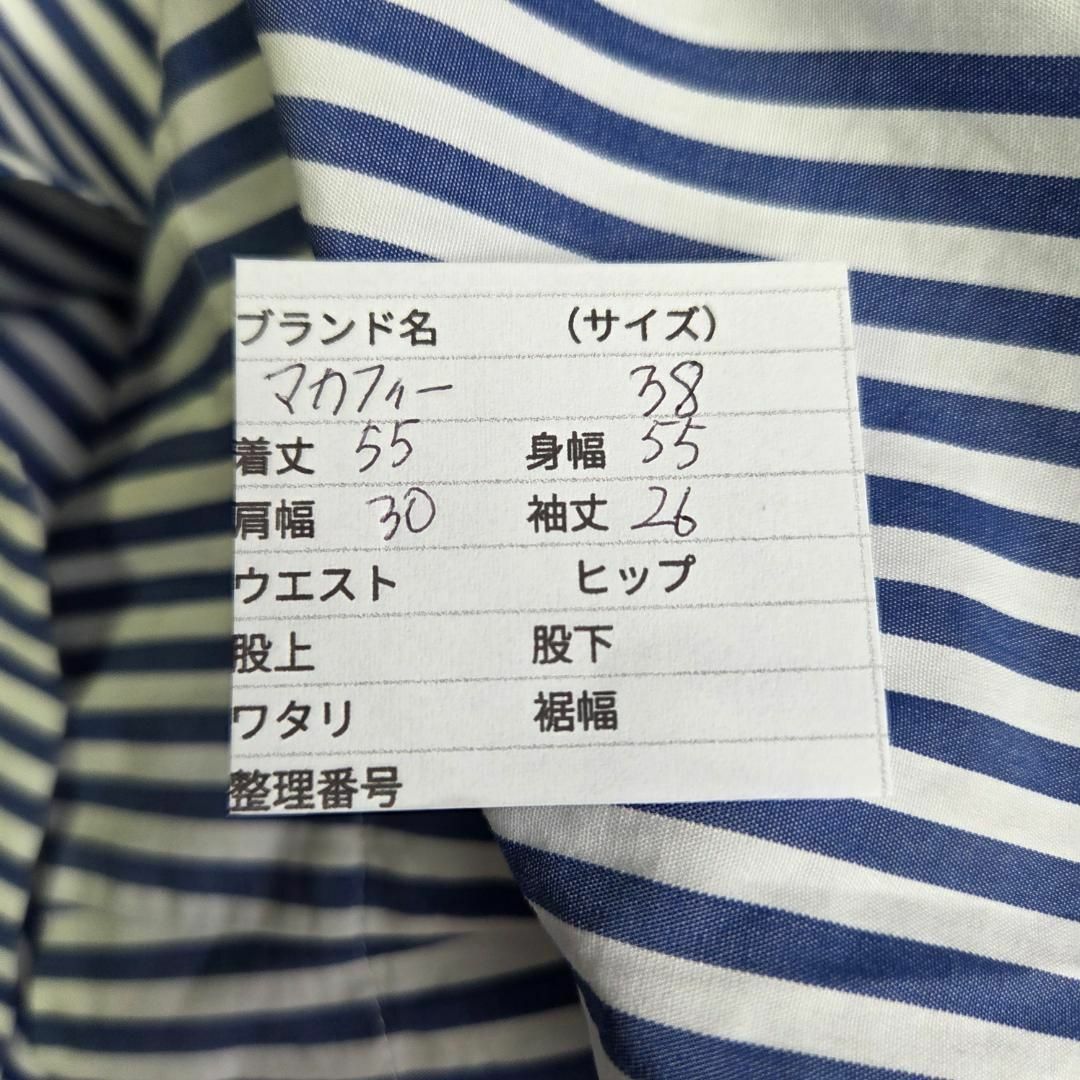 ブランド名 （サイズ）
マカフィー 38
着丈 55 身幅 55
肩幅 30 袖丈 26
ウエスト ヒップ
股上 股下
ワタリ 裾幅
整理番号